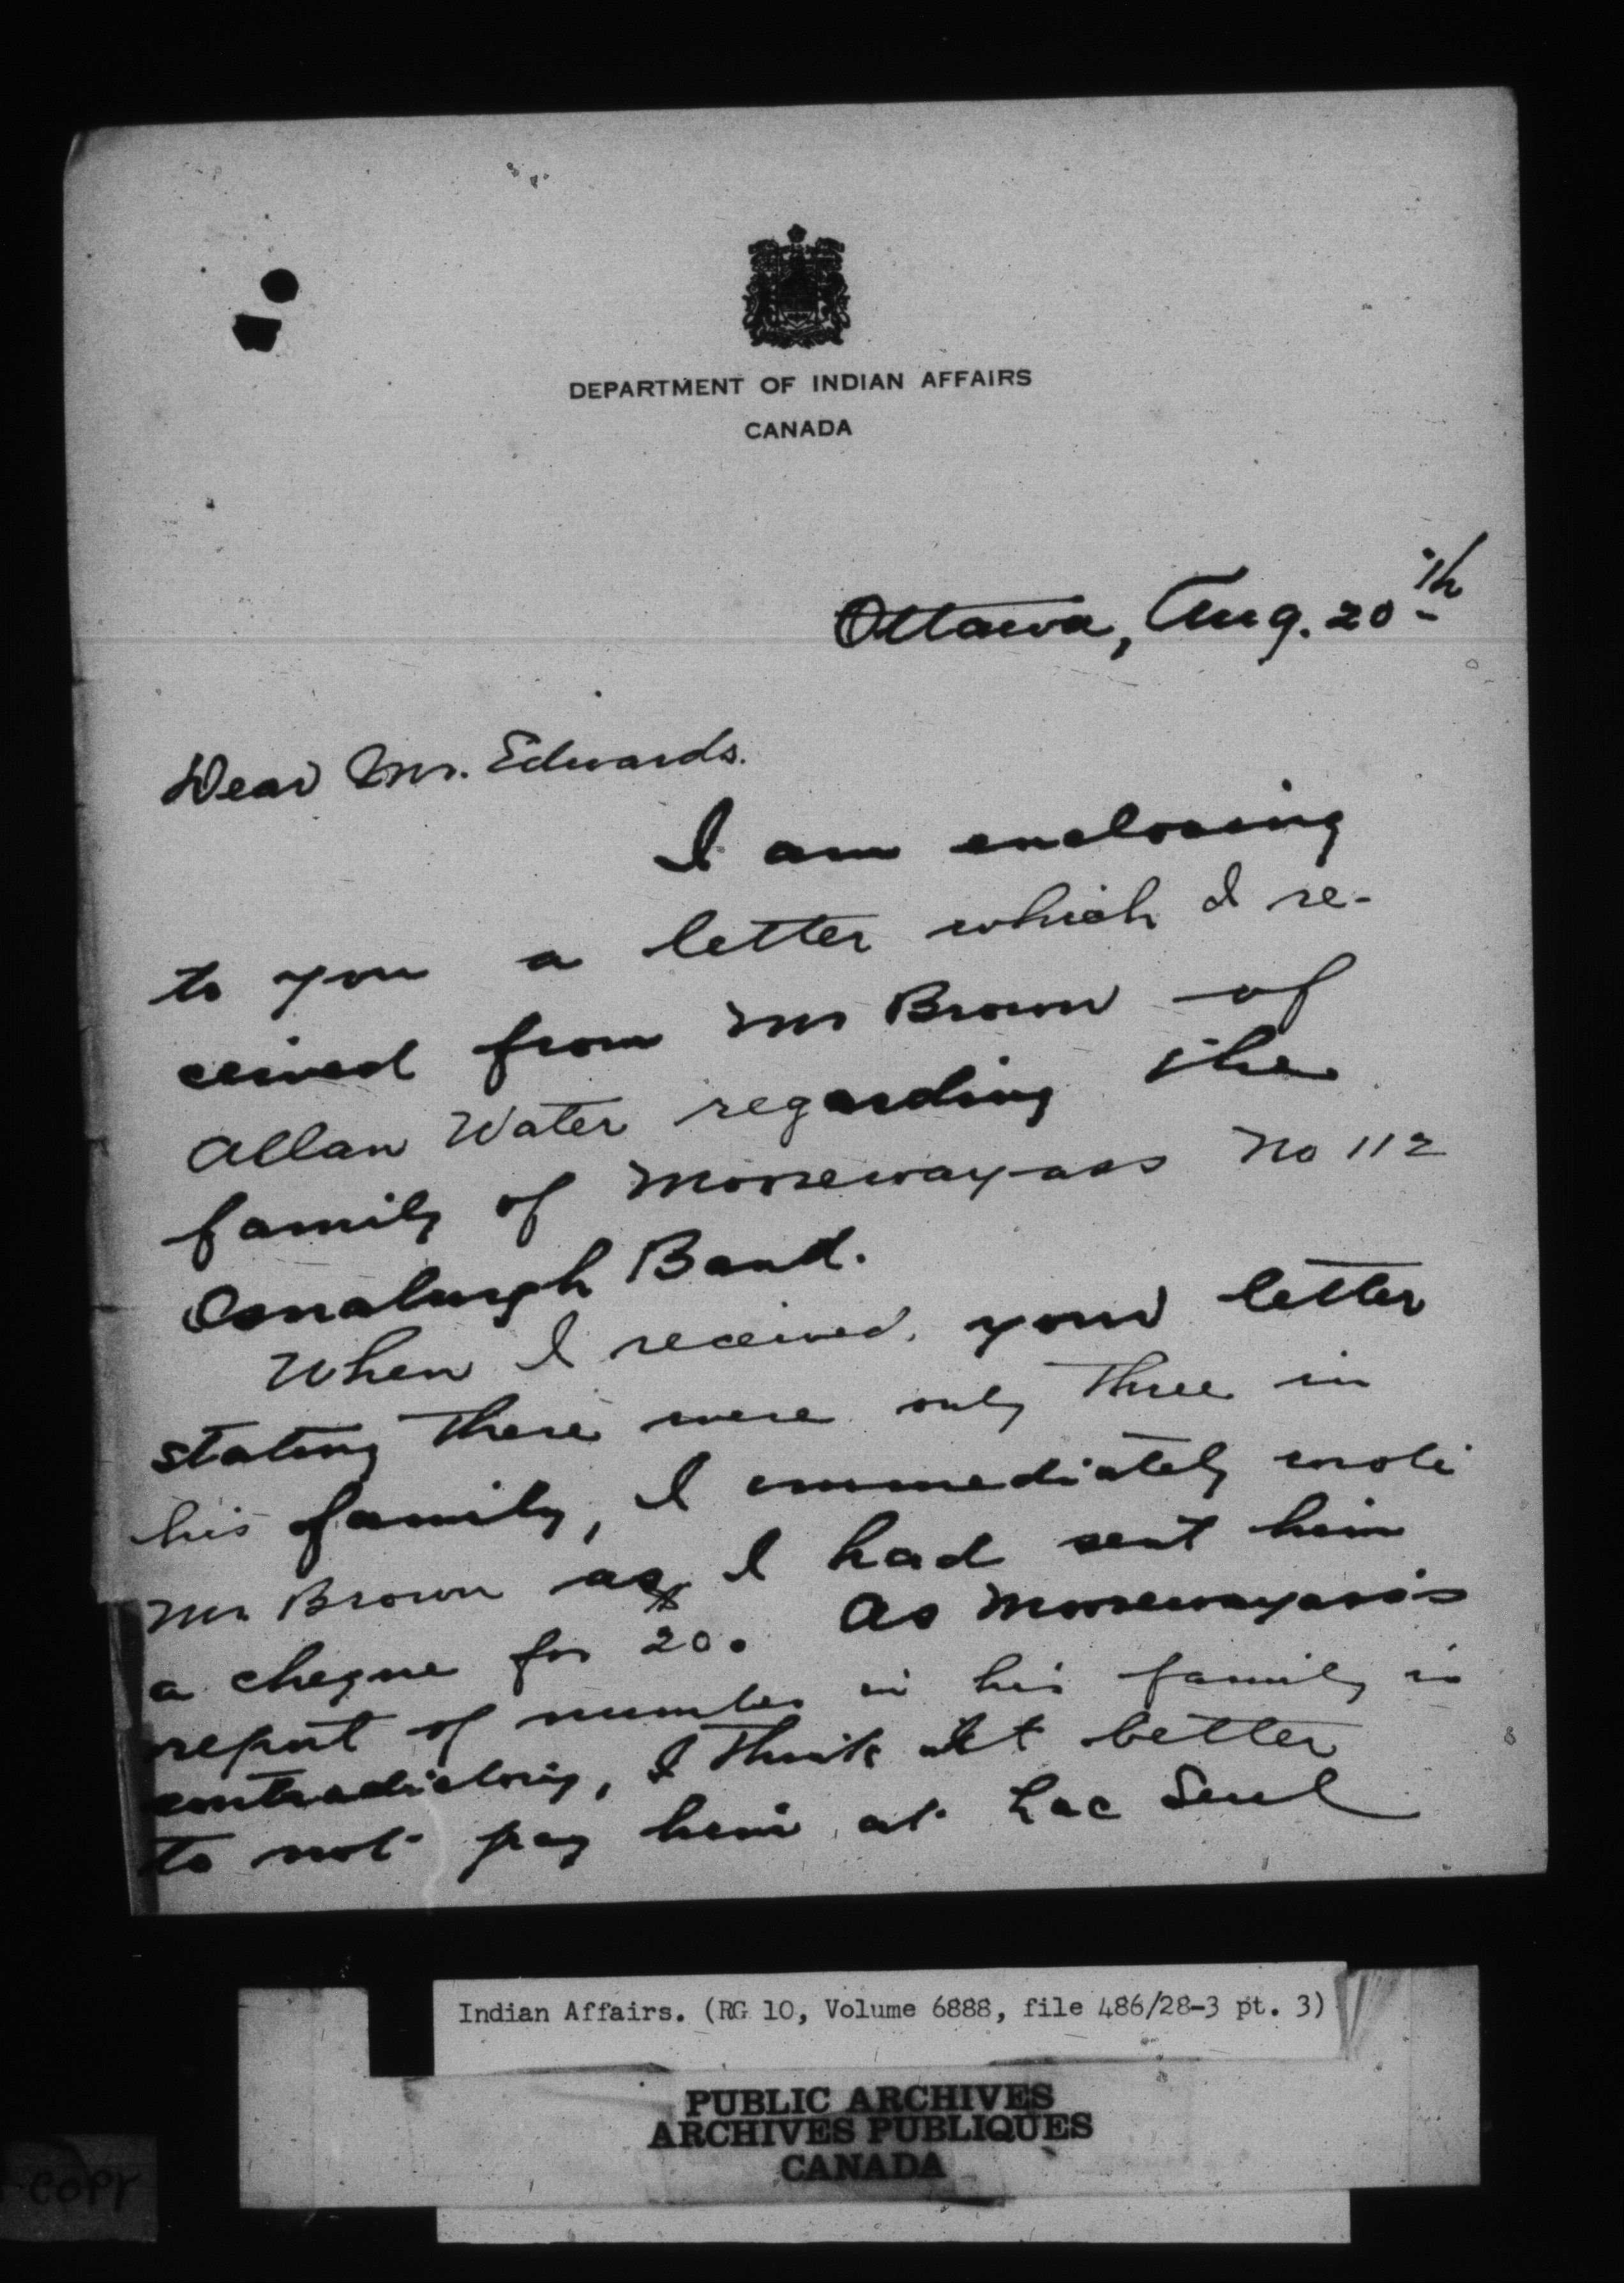 DEPARTMENT OF INDIAN AFFAIRS
CANADA
Ottawa, Aug. 20th
Dear Mr. Edwards.
I am enclosing
to you a letter which I re-
ceived from Mr Brown of
Allan Water regarding the
family of Moosewayass No 112
Osnaburgh Band.
When I received your letter
stating there were only three in
his family, I immediately wrote
Mr Brown as I had sent him
a cheque for $20. As Moosewayass's
report of number in his family is
contradictory, I think it better
to not pay him at Lac Seul
Indian Affairs. (RG 10, Volume 6888, file 486/28-3 pt. 3)
PUBLIC ARCHIVES
ARCHIVES PUBLIQUES
CANADA
COPY